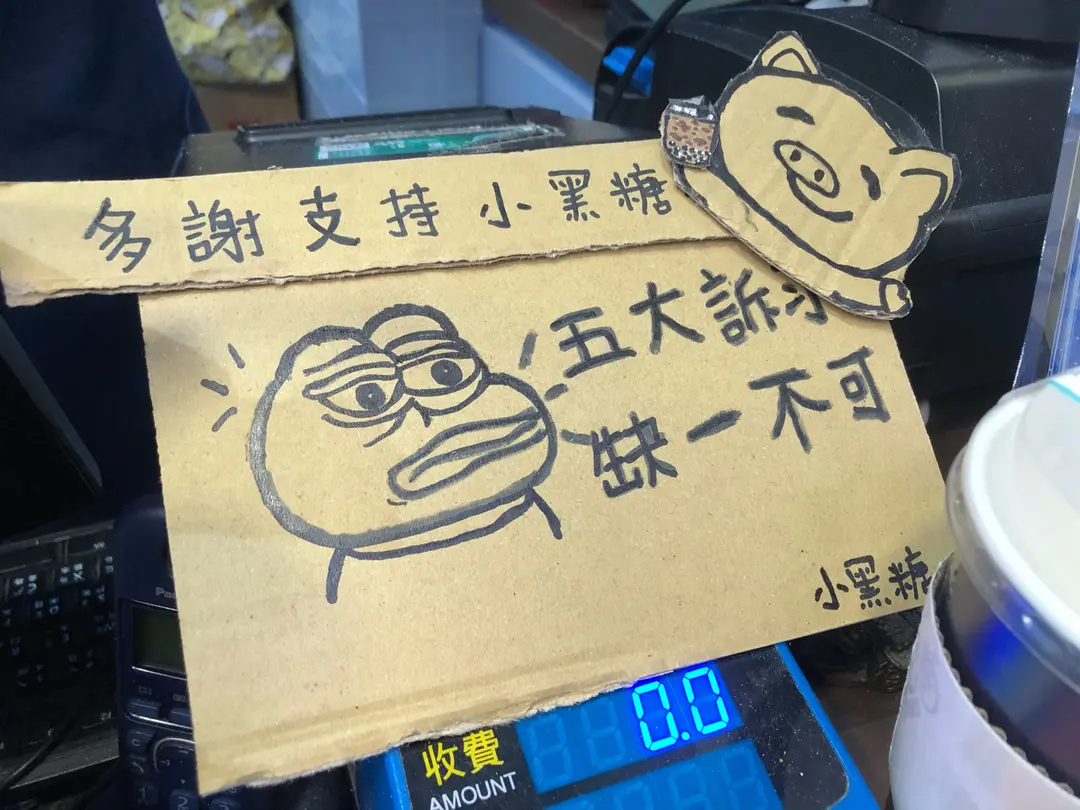 多謝支持小黑糖
五大訴求
缺一不可
小黑糖
0.0
收費
AMOUNT